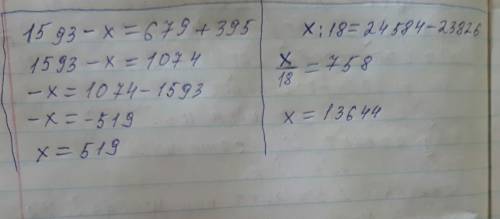 1593 - x = 679 + 395
1593 - x = 1074
-x = 1074 - 1593
-x = -519
x = 519
x : 18 = 24584 - 23826
x/18 = 758
x = 13644